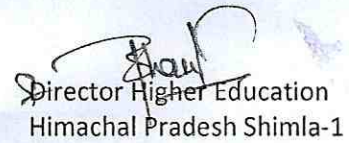 Director Higher Education
Himachal Pradesh Shimla-1